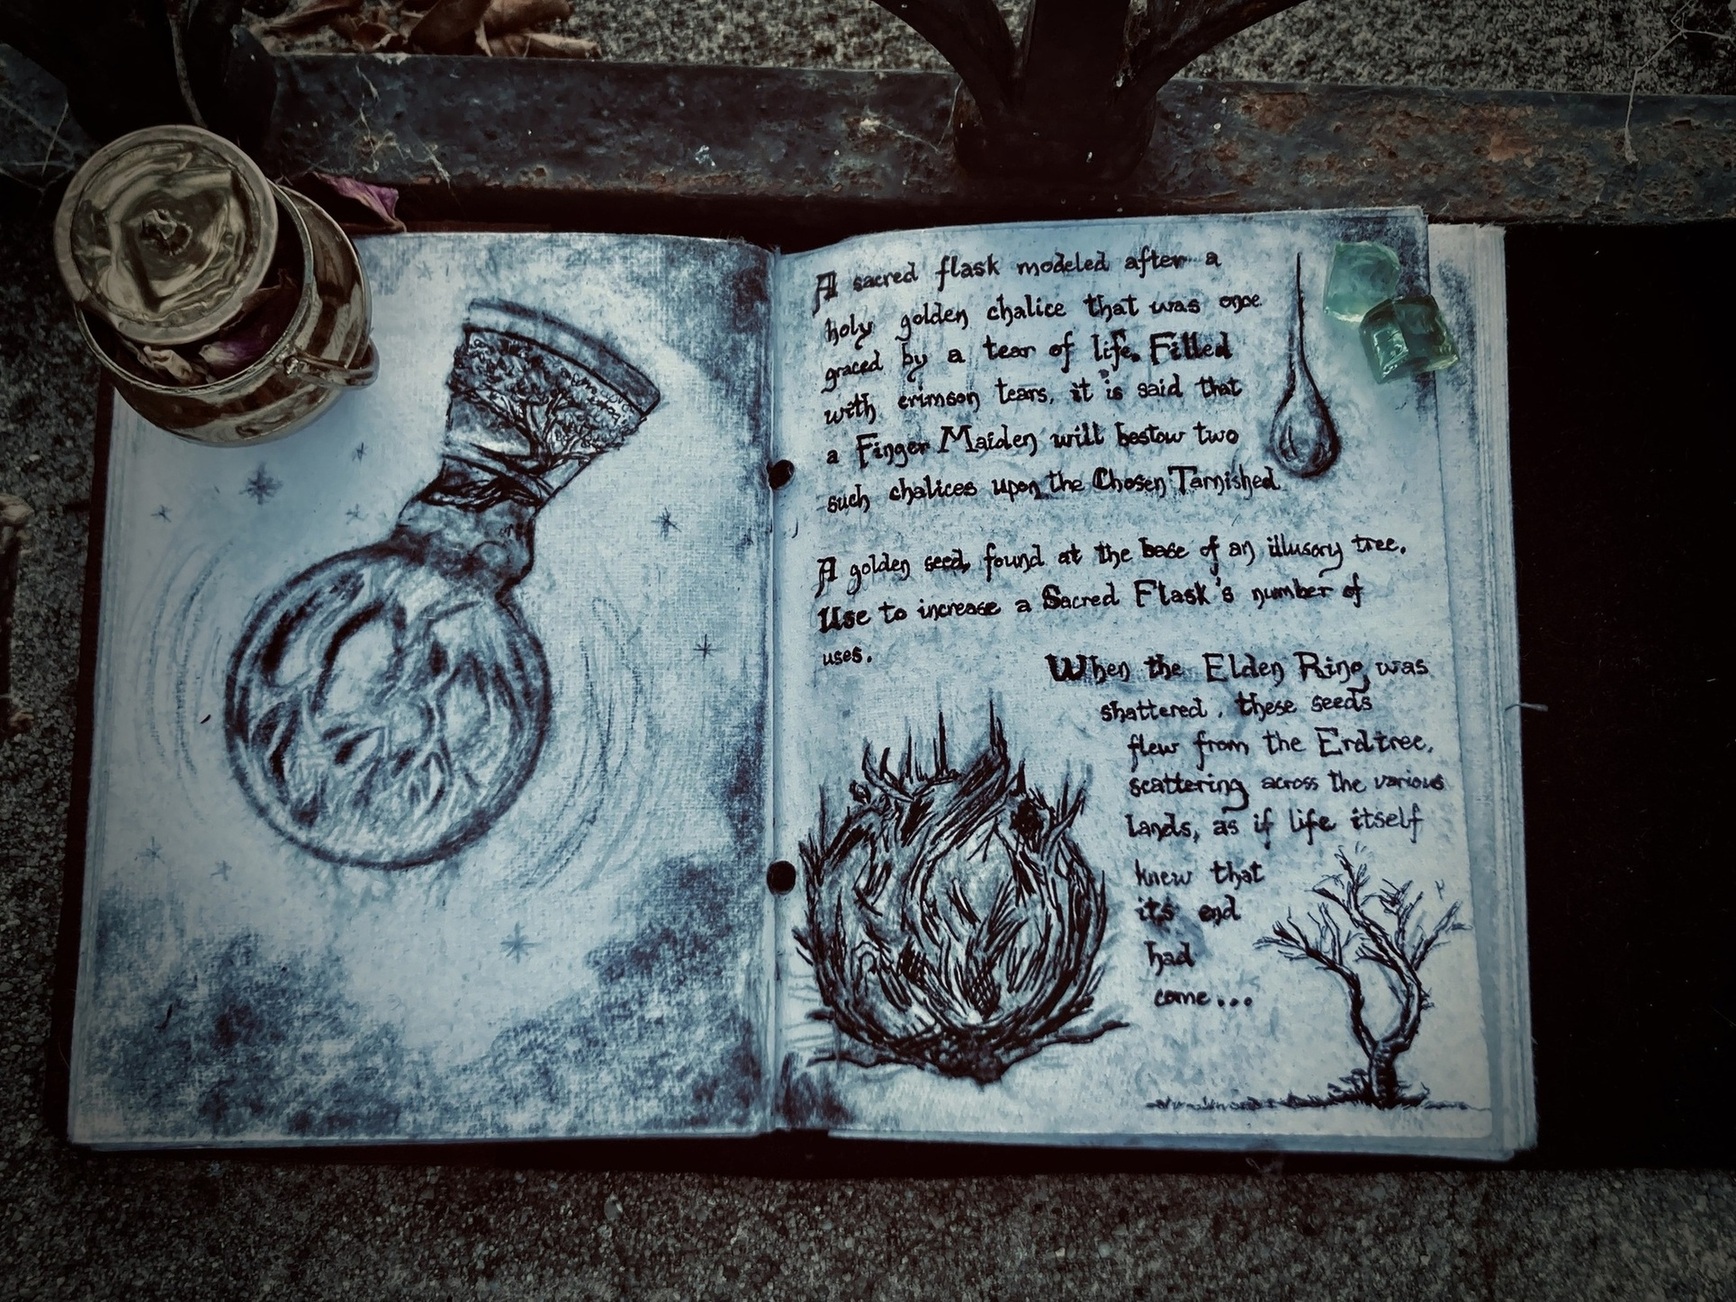 A sacred flask modeled after a
holy golden chalice that was once
graced by a tear of life. Filled
with crimson tears, it is said that
a Finger Maiden will bestow two
such chalices upon the Chosen Tarnished.
A golden seed, found at the base of an illusory tree.
Use to increase a Sacred Flask's number of
uses.
When the Elden Ring was
shattered, these seeds
flew from the Erdtree,
scattering across the various
lands, as if life itself
knew that
its end
had
come...